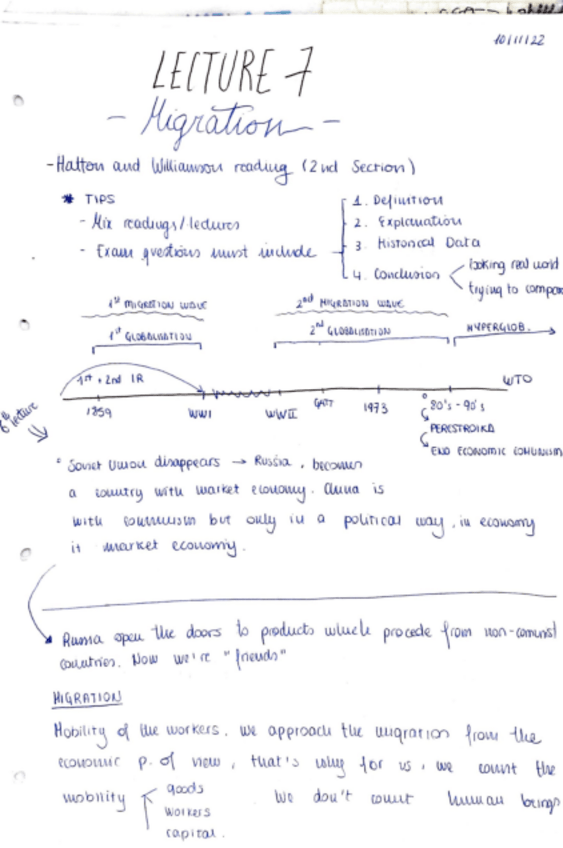 10/11/22
LECTURE 7
- Migration -
- Hatton and Williamson reading (2nd Section)
* TIPS
- Mix readings/lectures
- Exam questions must include
1. Definition
2. Explanation
3. Historical Data
4. Conclusion
looking real world
trying to compar
1st MIGRATION WAVE
2nd MIGRATION WAVE
1st GLOBALISATION
2nd GLOBALISATION
HYPERGLOB.
1st + 2nd IR
WTO
1859
WWI
WWII
GATT
1973
80's - 90's
6th lecture
PERESTROIKA
END ECONOMIC COMUNISM
° Soviet Union disappears → Russia, becomes
a country with market economy. China is
with communism but only in a political way, in economy
it market economy.
Russia open the doors to products which procede from non-comunist
countries. Now we're "friends"
MIGRATION
Mobility of the workers. We approach the migration from the
economic p. of view, that's why for us, we count the
mobility
goods
workers
capital.
We don't count human beings